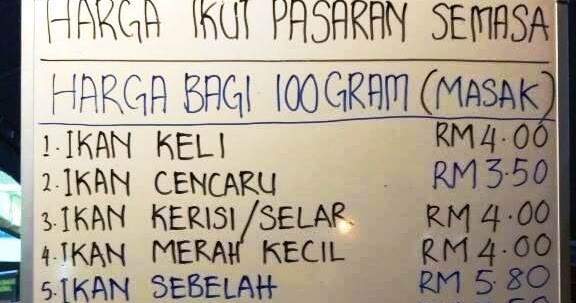 HARGA IKUT PASARAN SEMASA
HARGA BAGI 100GRAM (MASAK)
1. IKAN KELI RM 4.00
2. IKAN CENCARU RM 3.50
3. IKAN KERISI/SELAR RM 4.00
4. IKAN MERAH KECIL RM 4.00
5. IKAN SEBELAH RM 5.80